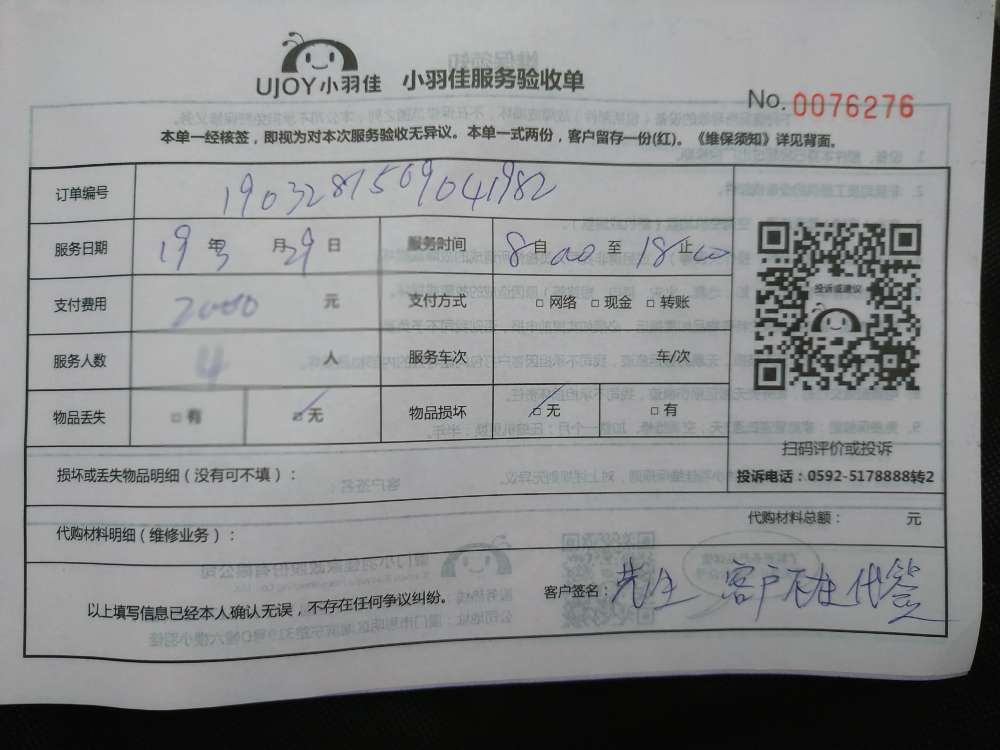 UJOY小羽佳 小羽佳服务验收单
No. 0076276
本单一经核签，即视为对本次服务验收无异议。本单一式两份，客户留存一份(红)。《维保须知》详见背面。
订单编号 190328156904 1982
服务日期 19 年 3 月 29 日 服务时间 8 自 00 至 18 止 00
支付费用 2000 元 支付方式 □ 网络 □ 现金 □ 转账
服务人数 4 人 服务车次 车/次
物品丢失 □ 有 ☑ 无 物品损坏 ☑ 无 □ 有
投诉或建议
扫码评价或投诉
投诉电话：0592-5178888转2
损坏或丢失物品明细（没有可不填）：
代购材料明细（维修业务）： 代购材料总额： 元
以上填写信息已经本人确认无误，不存在任何争议纠纷。 客户签名： 先生 客户不在 代签